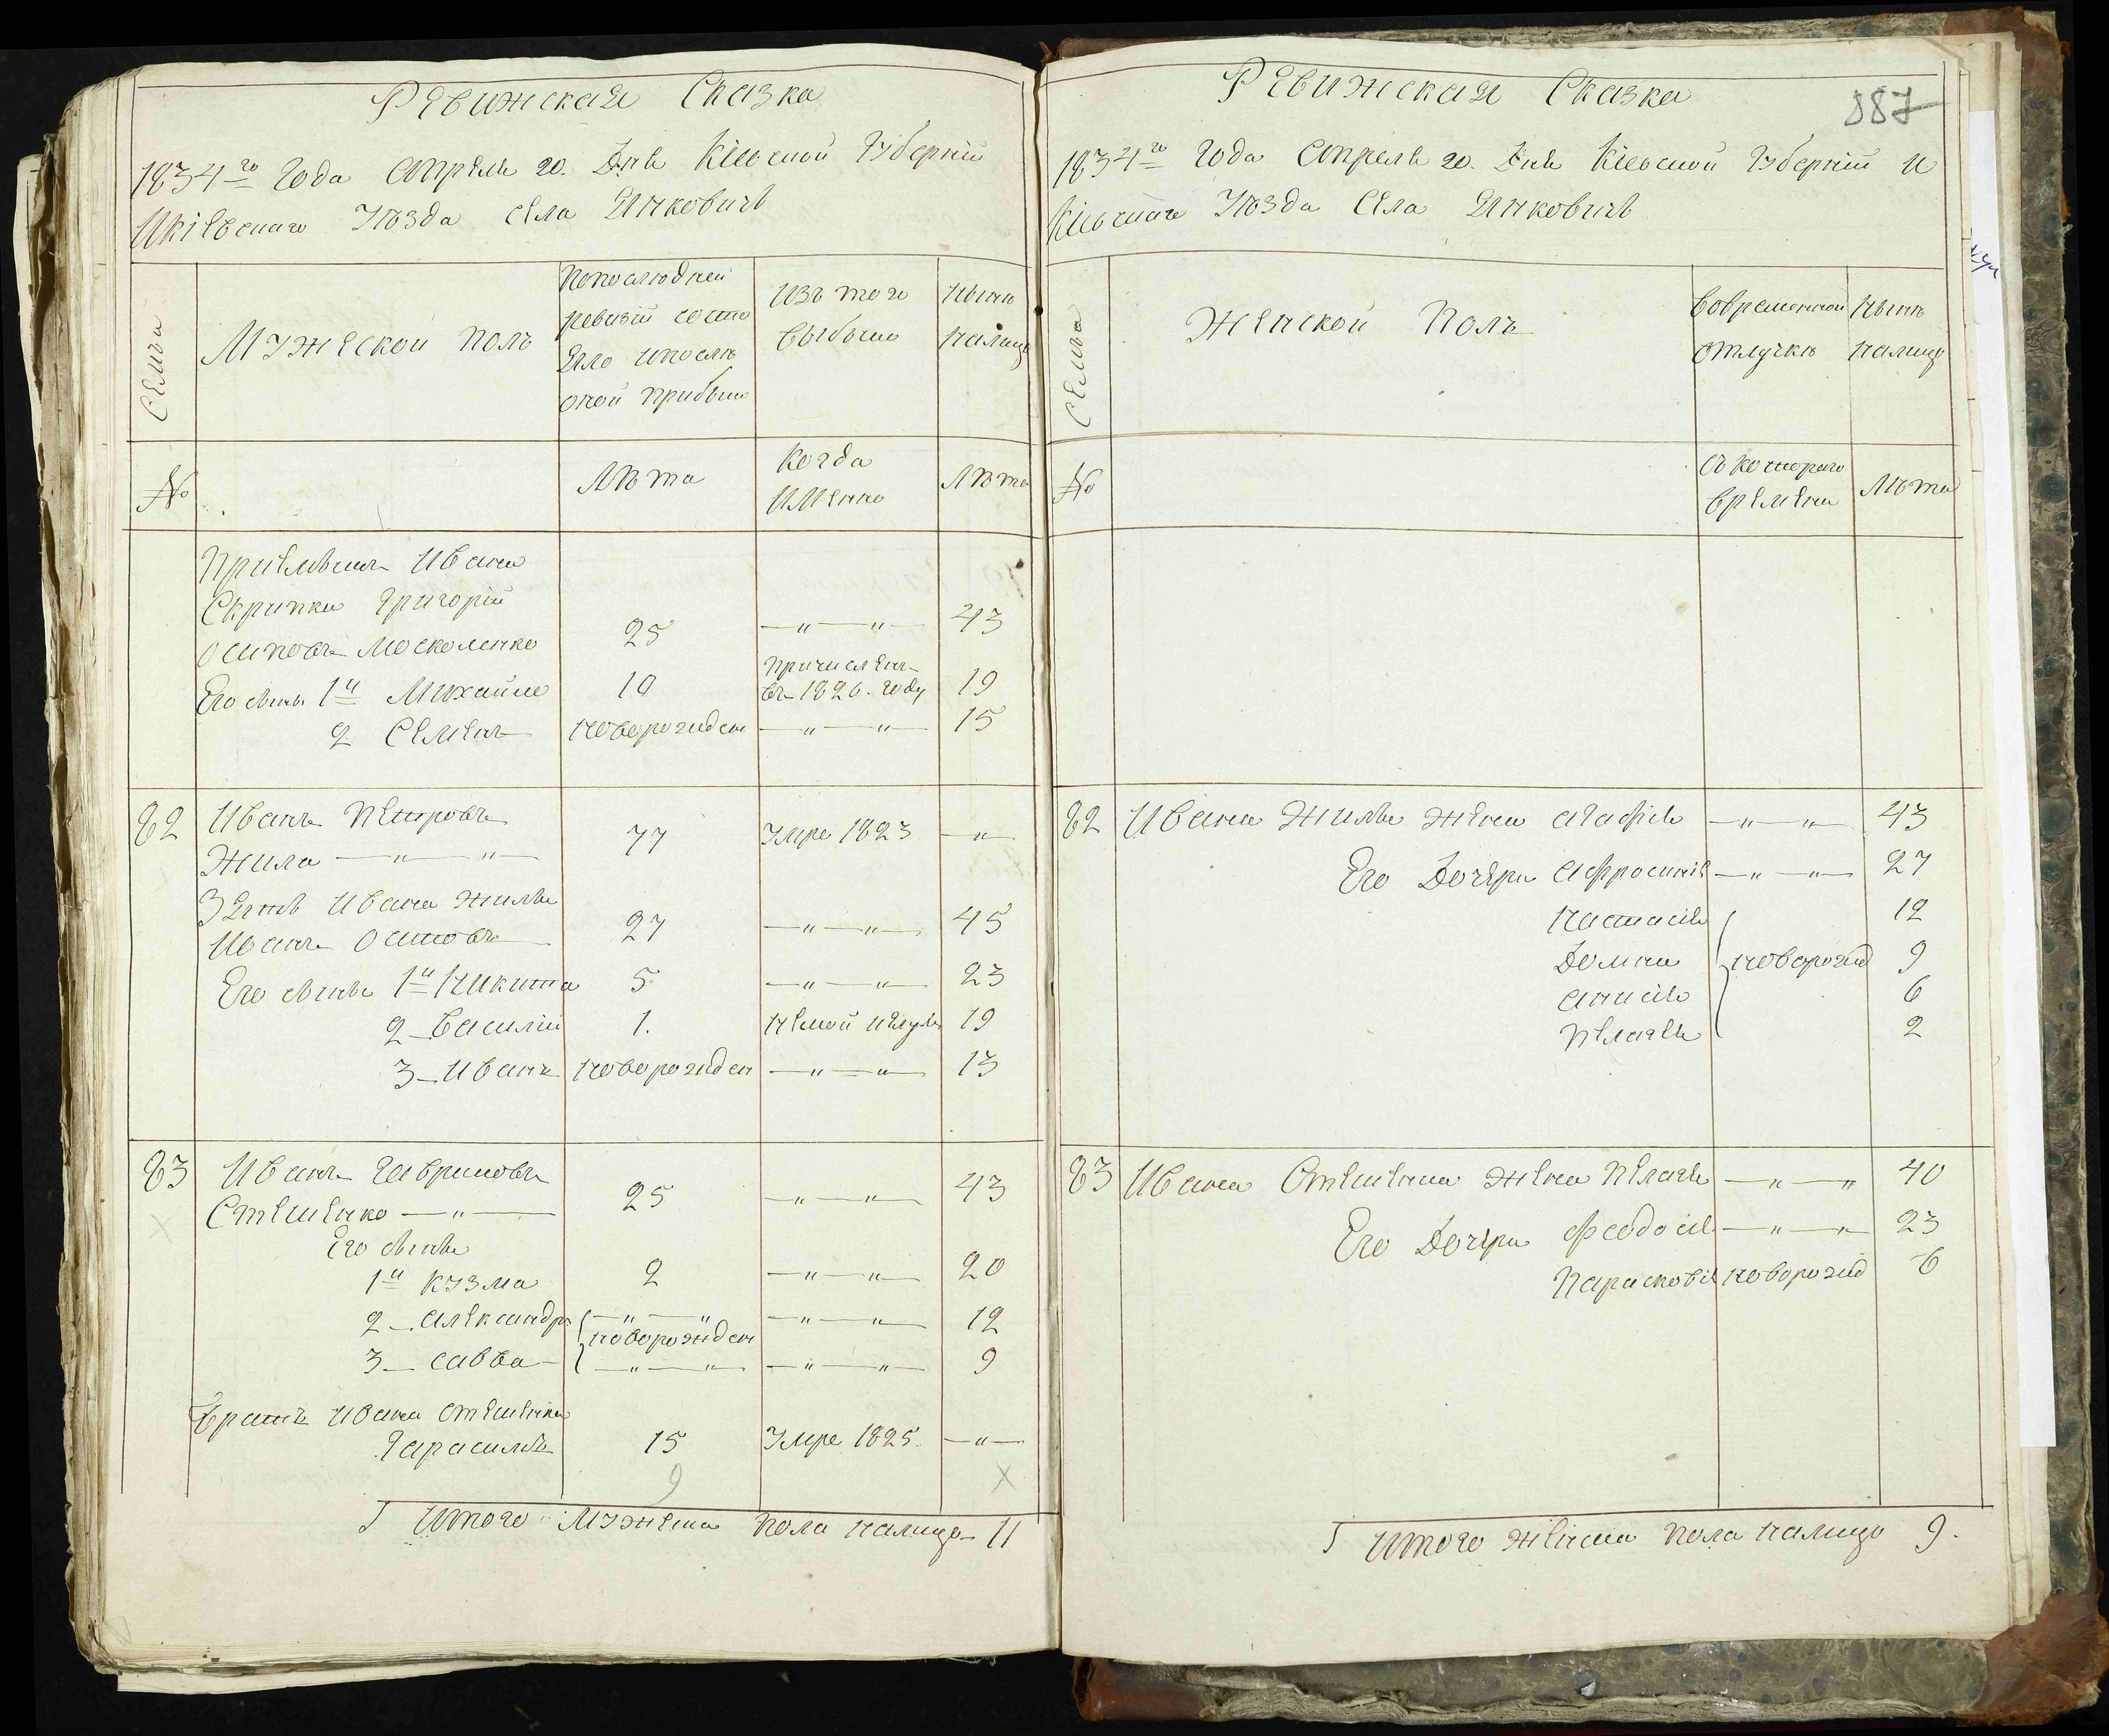 Ревижская Сказка
1834го Года Апреля 20. Дня Кіевской Губерніи
Икіевскаго Уѣзда Села Янковичь
Семья
Мужескои полъ
Попослюдней
ревизіи состо
яло ипослѣ
оной прибыло
Изъ того
выбыло
Нынѣ
налицо
№
Лѣта
Когда
имѣнно
Лѣта
Приемышъ Ивана
Скрипки Григорій
Осиповъ Москаленко
25
—„—„—
43
Его сынь 1й Михайло
10
Причислѣнъ
въ 1826. году
19
2 Семенъ
новорождѣн
—„—„—
15
82
Иванъ Петровъ
Жила —„—„—
77
Умре 1823
—„—
Зять Ивана Жилы
Иванъ Осиповъ
27
—„—„—
45
Его сынь 1й Никита
5
—„—„—
23
2 Василій
1.
19
3 Иванъ
новорождѣн
—„—„—
13
83
Иванъ Гавриловъ
Стешенко —„—
25
—„—„—
43
Его сынь
1й Кузма
2
—„—„—
20
2 Александръ
—„—„—
—„—„—
12
новорождѣн
3 Савва
—„—„—
—„—„—
9
Братъ Ивана Стешенка
Гарасимъ
15
Умре 1825.
—„—
9
х
Итого Мужеска пола налицо 11
Ревижская Сказка
887
1834го Года Апреля 20. Дня Кіевской Губерніи и
Кіевскаго Уѣзда Села Янковичь
Семья
Женской Полъ
Вовременной
отлучкѣ
Нынѣ
налицо
№
Съ котораго
времѣни
Лѣта
82
Ивана Жилы жѣна Агафія —„—„— 43
Его Дочери Афросинія —„—„— 27
Настасія 12
Домна новорожд 9
Анисія 6
Пелагея 2
83
Ивана Стешенка жѣна Пелагея —„—„— 40
Его Дочери Феодосія —„—„— 23
Парасковія новорожд 6
Итого женска пола налицо 9.